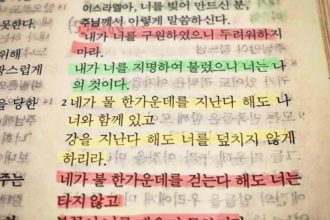 이스라엘아, 너를 빚어 만드신 분,
못한다.
주님께서 이렇게 말씀하신다.
내가 너를 구원하였으니 두려워하지
위해
마라.
랑스럽게
내가 너를 지명하여 불렀으니 너는 나
의 것이다.
을 당한
2 네가 물 한가운데를 지난다 해도 나
너와 함께 있고
강을 지난다 해도 너를 덮치지 않게
하리라.
주는
네가 불 한가운데를 걷는다 해도 너는
타지 않고